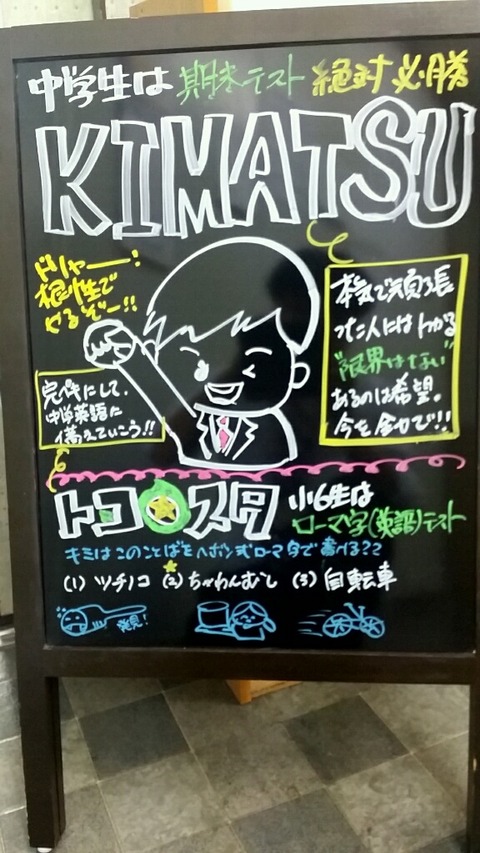 中学生は 期末テスト 絶対必勝
KIMATSU
ドリャーー!
根性で
やるぞー!!
本気で頑張
った人にはわかる
"限界はない"
あるのは希望。
今を全せで!!
完ペキにして、
中学英語に
備えていこう!!
トコ★スタ 小6生は
ローマ字(英語)テスト
キミはこのことばをヘボン式ローマ字で書ける??
(1) ツチノコ (2) ちゃわんむし (3) 自転車
発見!